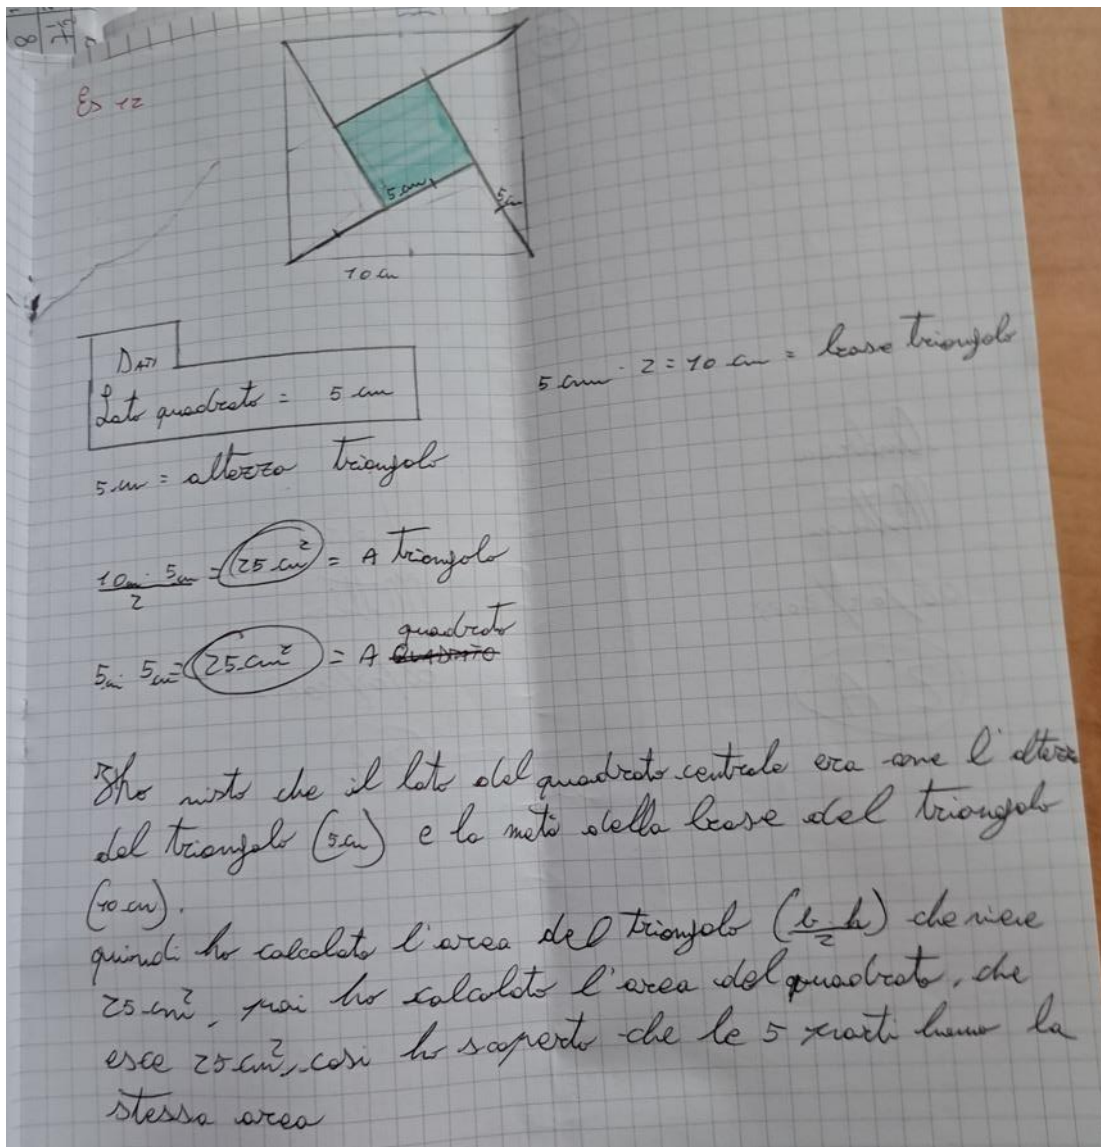 Es 12
5 cm
5 cm
10 cm
DATI
Lato quadrato = 5 cm
5 cm · 2 = 10 cm = base triangolo
5 cm = altezza triangolo
10cm · 5cm / 2 = 25 cm² = A triangolo
5cm · 5cm = 25 cm² = A QUADRATO quadrato
ho visto che il lato del quadrato centrale era come l'altezza
del triangolo (5cm) e la metà della base del triangolo
(10 cm).
quindi ho calcolato l'area del triangolo (b·h/2) che viene
25 cm², poi ho calcolato l'area del quadrato, che
esce 25 cm², così ho scoperto che le 5 parti hanno la
stessa area